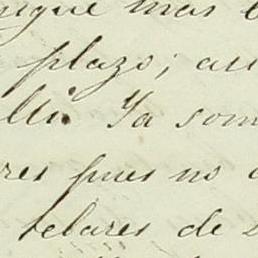 mas
plazo; au
ello. Ya som
res pues no
telares de